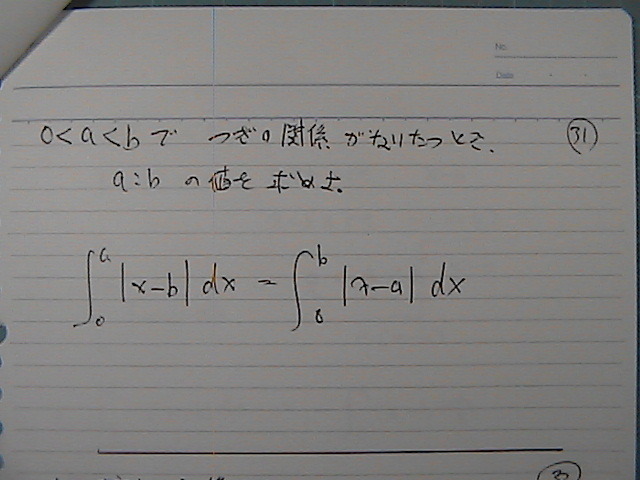 No.
Date
0<a<bで つぎの関係がなりたつとき、 ㉛
a:b の値を求めよ。
∫₀ᵃ |x-b| dx = ∫₀ᵇ |x-a| dx